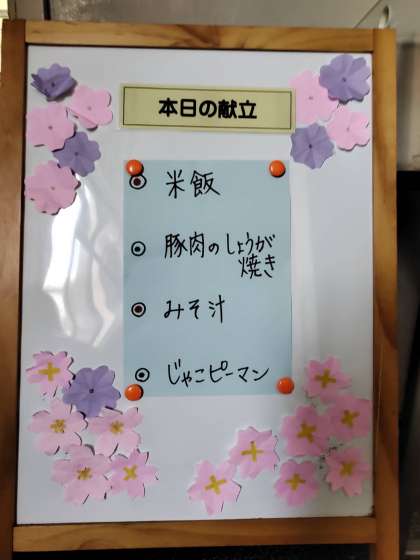 本日の献立
◉ 米飯
◉ 豚肉のしょうが
焼き
◉ みそ汁
◉ じゃこピーマン